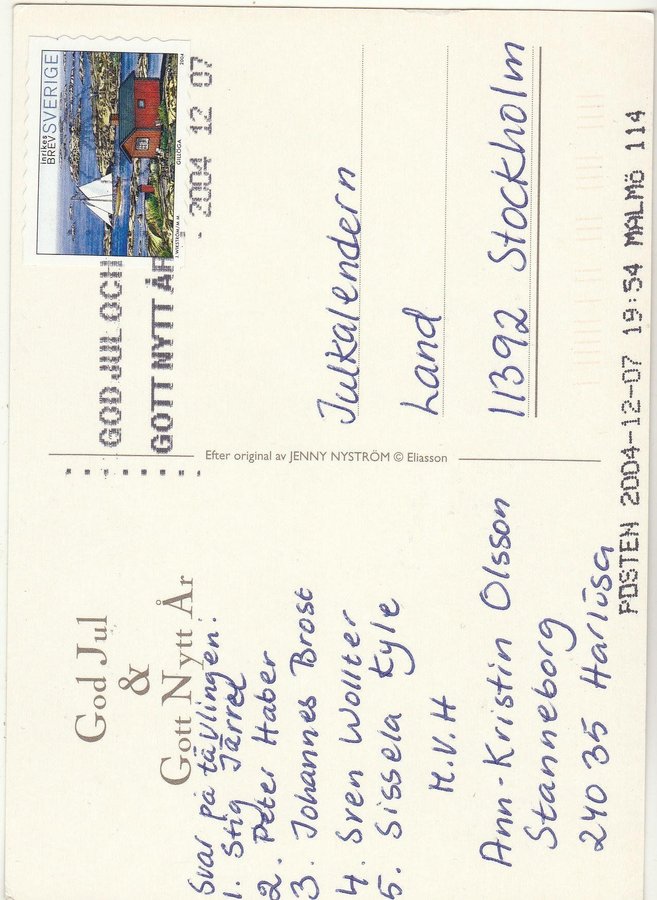 God Jul
&
Gott Nytt År
Svar på tävlingen:
1. Stig Järrel
2. Peter Haber
3. Johannes Brost
4. Sven Wollter
5. Sissela Kyle
M.V.H
Ann-Kristin Olsson
Stanneborg
240 35 Harlösa
Efter original av JENNY NYSTRÖM © Eliasson
inrikes
BREV SVERIGE
2004
GILLÖGA
J. WIKSTRÖM/M.M.
GOD JUL OCH
GOTT NYTT ÅR
2004 12 07
Julkalendern
Land
11392 Stockholm
POSTEN 2004-12-07 19:54 MALMÖ 114